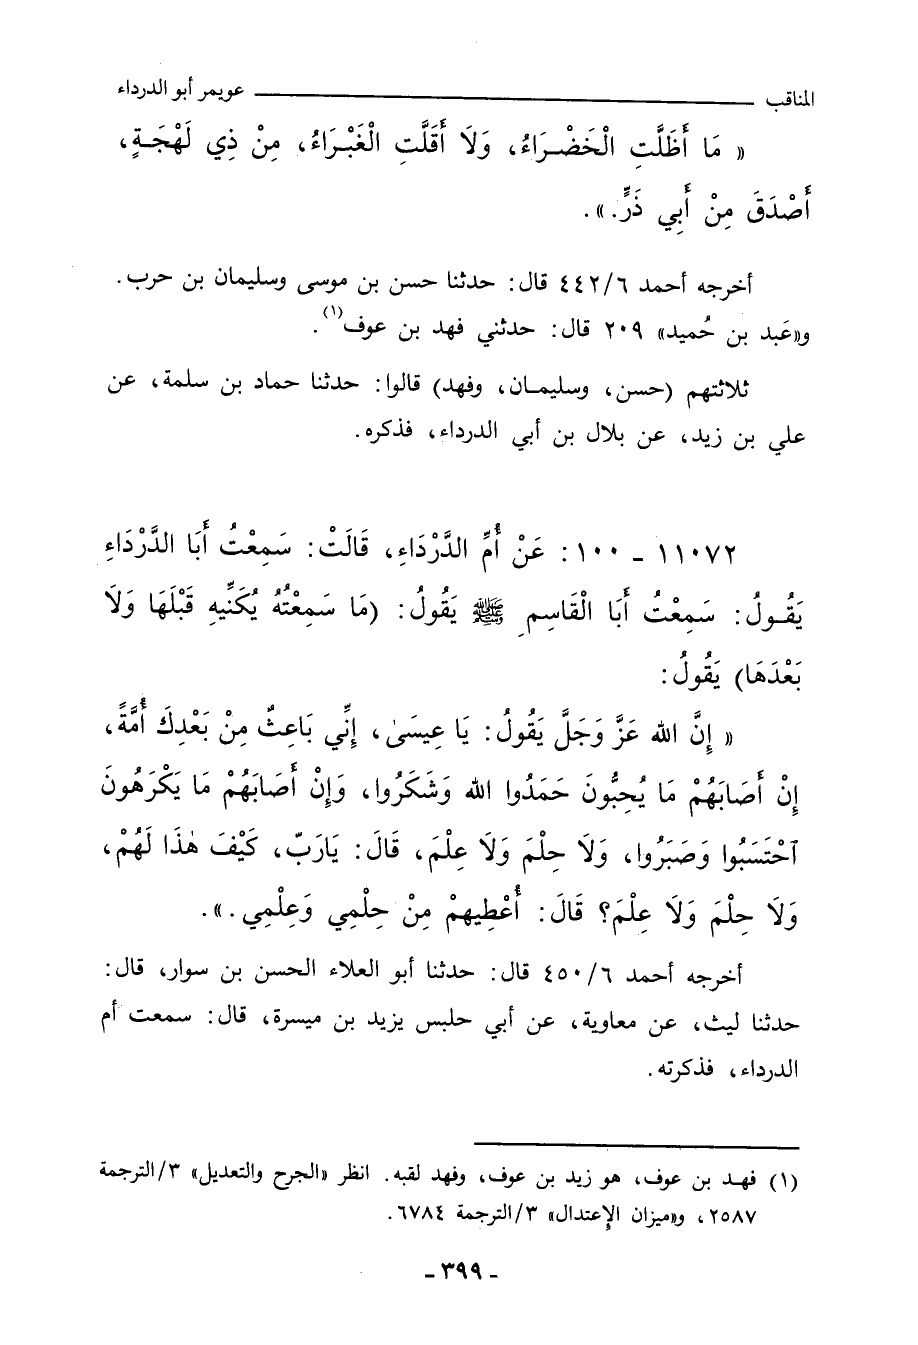 المناقب ــــــــــــــــــــــــــــ عويمر أبو الدرداء
« مَا أَظَلَّتِ الْخَضْـرَاءُ، وَلَا أَقَلَّتِ الْغَبْـرَاءُ، مِنْ ذِي لَهْجَـةٍ،
أَصْدَقَ مِنْ أَبِي ذَرٍّ.».
أخرجه أحمد ٤٤٢/٦ قال: حدثنا حسن بن موسى وسليمان بن حرب.
و«عَبد بن حُميد» ٢٠٩ قال: حدثني فهد بن عوف(١).
ثلاثتهم (حسن، وسليمـان، وفهد) قالوا: حدثنا حماد بن سلمة، عن
علي بن زيد، عن بلال بن أبي الدرداء، فذكره.
١١٠٧٢ - ١٠٠: عَنْ أُمِّ الدَّرْدَاءِ، قَالَتْ: سَمِعْتُ أَبَا الدَّرْدَاءِ
يَقُـولُ: سَمِعْتُ أَبَا الْقَاسِمِ ﷺ يَقُولُ: (مَا سَمِعْتُهُ يُكَنِّيهِ قَبْلَهَا وَلَا
بَعْدَهَا) يَقُولُ:
« إِنَّ الله عَزَّ وَجَلَّ يَقُولُ: يَا عِيسَىٰ، إِنِّي بَاعِثٌ مِنْ بَعْدِكَ أُمَّةً،
إِنْ أَصَابَهُمْ مَا يُحِبُّونَ حَمَدُوا الله وَشَكَرُوا، وَإِنْ أَصَابَهُمْ مَا يَكْرَهُونَ
آحْتَسَبُوا وَصَبَرُوا، وَلَا حِلْمَ وَلَا عِلْمَ، قَالَ: يَارَبّ، كَيْفَ هٰذَا لَهُمْ،
وَلَا حِلْمَ وَلَا عِلْمَ؟ قَالَ: أُعْطِيهِمْ مِنْ حِلْمِي وَعِلْمِي.».
أخرجه أحمد ٤٥٠/٦ قال: حدثنا أبو العلاء الحسن بن سوار، قال:
حدثنا ليث، عن معاوية، عن أبي حلبس يزيد بن ميسرة، قال: سمعت أم
الدرداء، فذكرته.
(١) فهـد بن عوف، هو زيد بن عوف، وفهد لقبه. انظر «الجرح والتعديل» ٣/الترجمة
٢٥٨٧، و«ميزان الإعتدال» ٣/الترجمة ٦٧٨٤.
- ٣٩٩ -